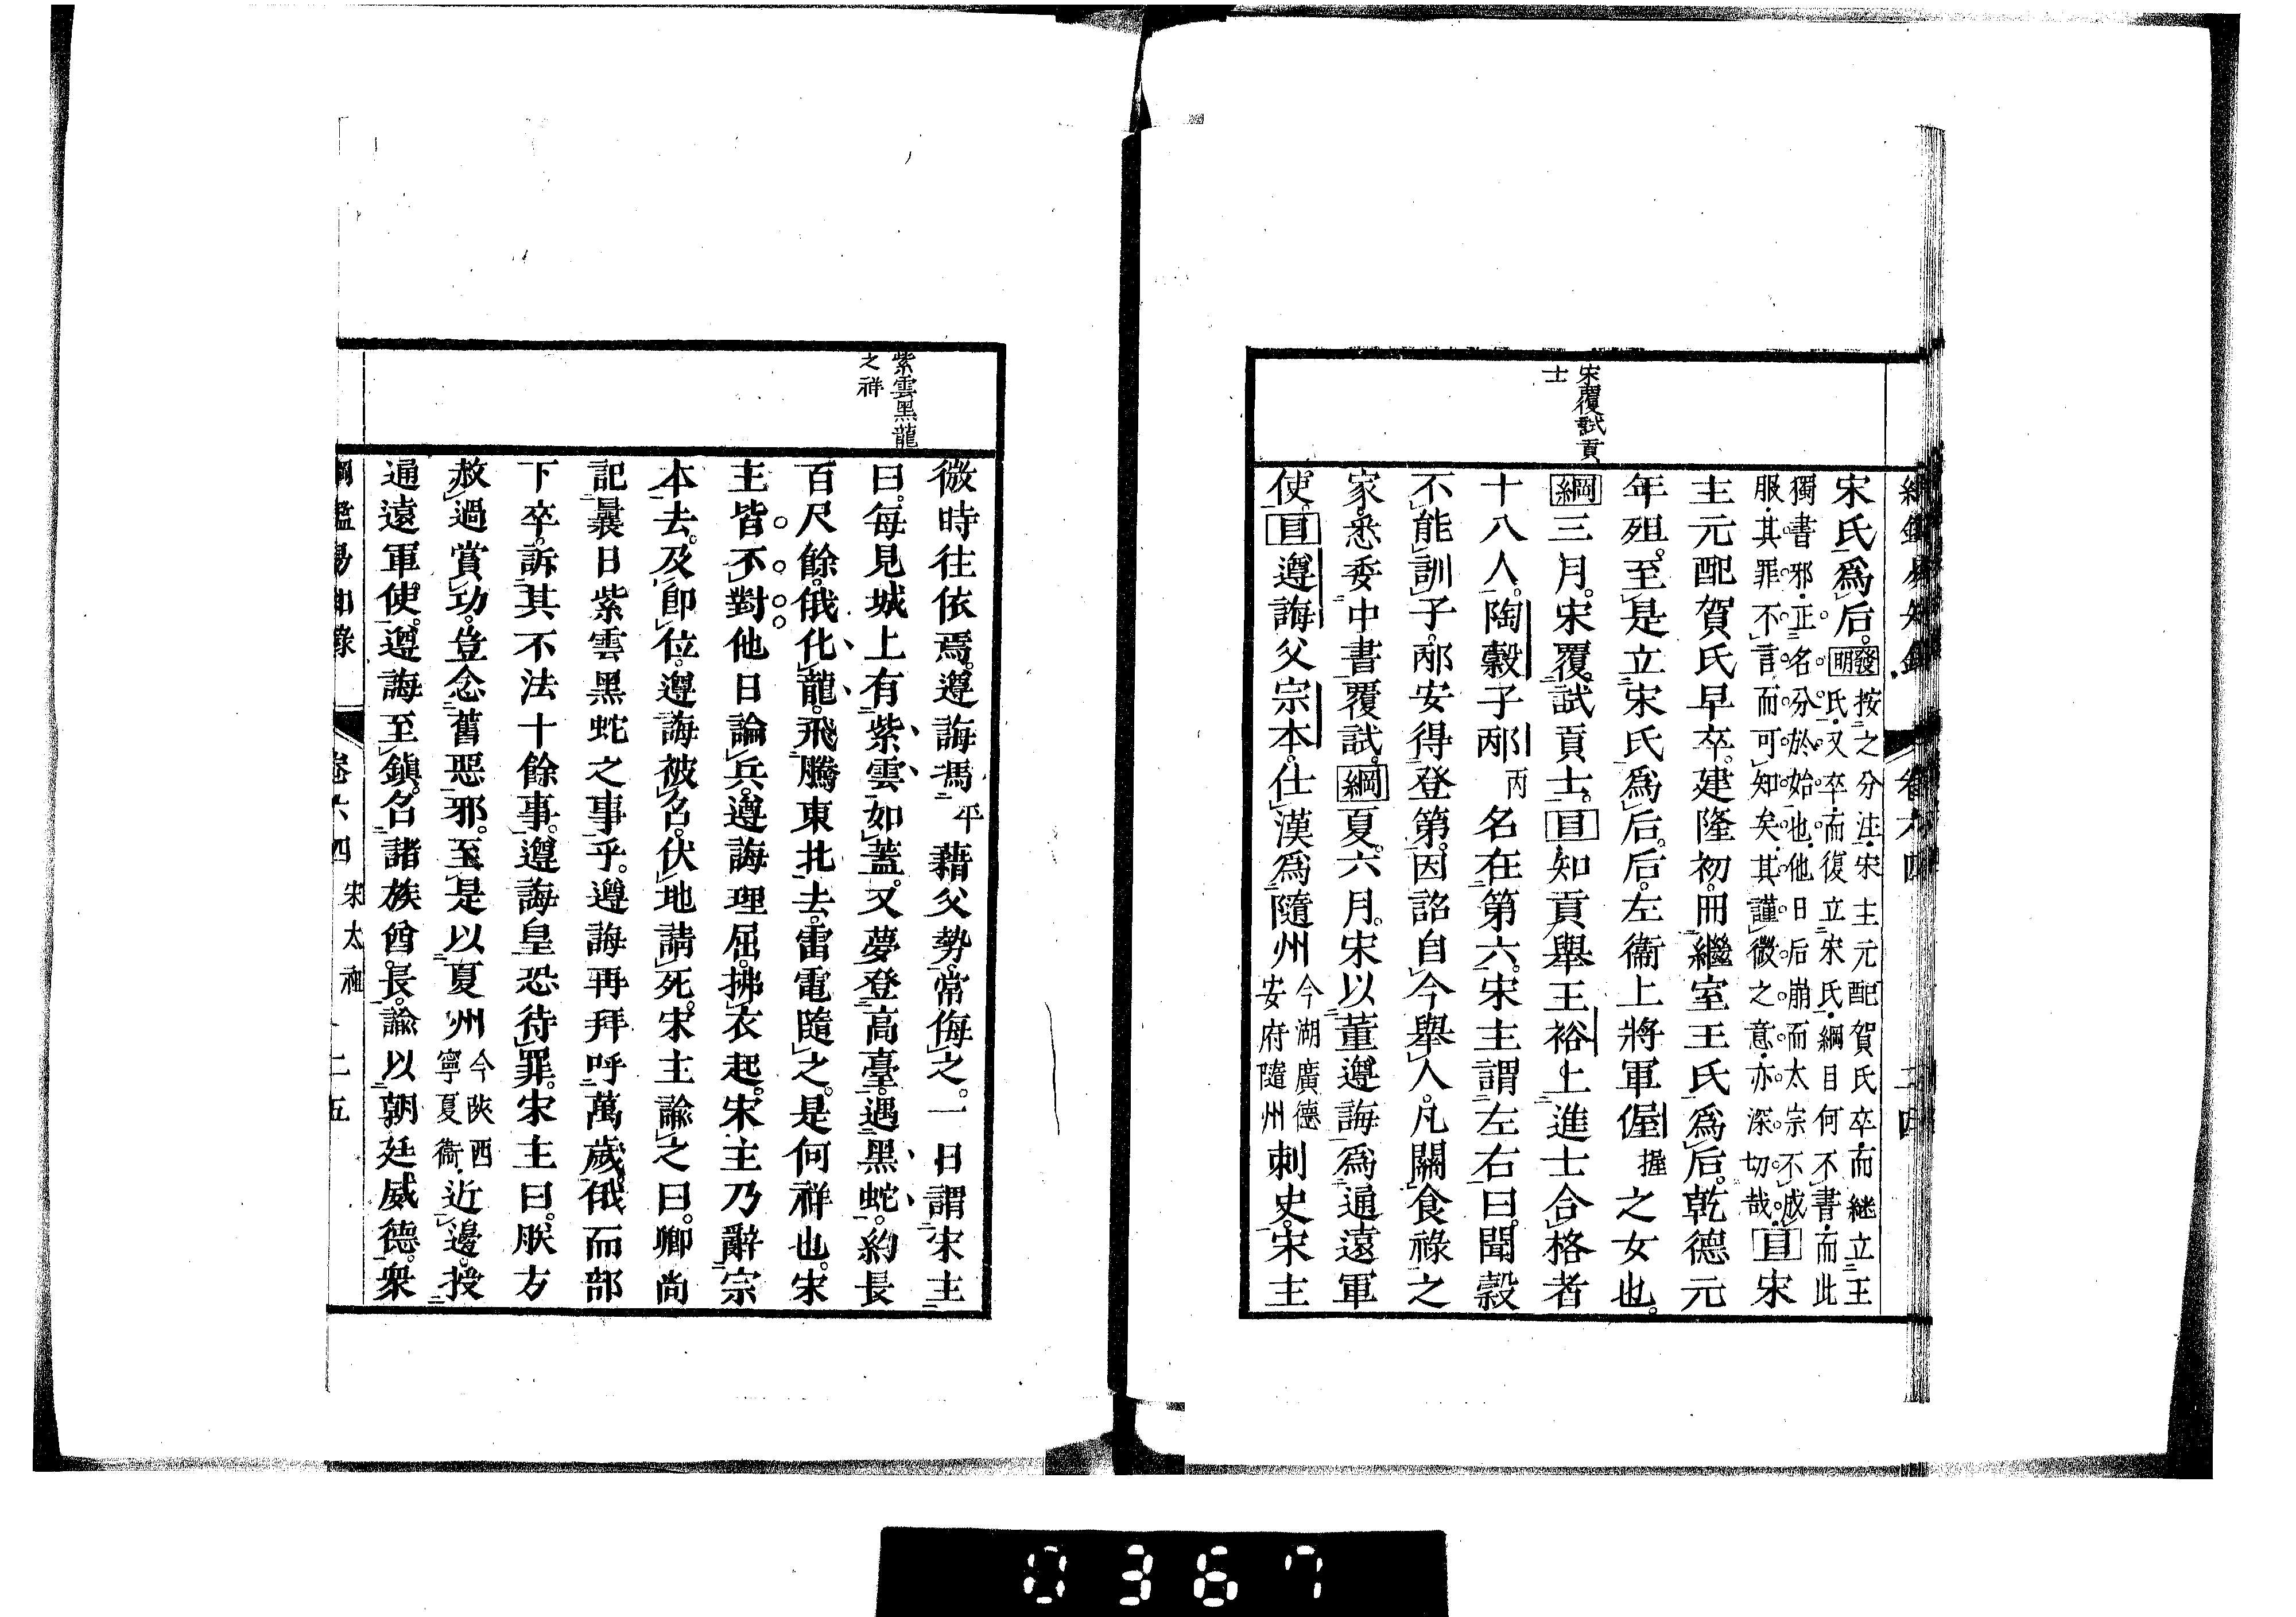 綱鑑易知錄 卷六四 二四
宋覆試貢
士
宋氏爲后。發明按之分注宋主元配賀氏卒而繼立王
氏又卒而復立宋氏綱目何不書而此
獨書邪正名分於始也他日后崩而太宗不成
服其罪不言而可知矣其謹微之意亦深切哉目宋
主元配賀氏早卒。建隆初。冊繼室王氏爲后。乾德元
年殂。至是立宋氏爲后。后。左衞上將軍偓握之女也。
綱三月。宋覆試貢士。目知貢舉王裕上進士合格者
十八人。陶穀子邴丙名在第六。宋主謂左右曰。聞穀
不能訓子。邴安得登第。因詔自今舉人。凡關食祿之
家。悉委中書覆試。綱夏。六月。宋以董遵誨爲通遠軍
使。目遵誨父宗本。仕漢爲隨州今湖廣德
安府隨州刺史。宋主
紫雲黑龍
之祥
微時往依焉。遵誨馮平藉父勢。常侮之。一日謂宋主
曰。每見城上有紫雲如蓋。又夢登高臺。遇黑蛇。約長
百尺餘。俄化龍。飛騰東北去。雷電隨之。是何祥也。宋
主皆不對。他日論兵。遵誨理屈。拂衣起。宋主乃辭宗
本去。及卽位。遵誨被召。伏地請死。宋主諭之曰。卿尚
記曩日紫雲黑蛇之事乎。遵誨再拜呼萬歲。俄而部
下卒。訴其不法十餘事。遵誨皇恐待罪。宋主曰。朕方
赦過賞功。豈念舊惡邪。至是以夏州今陝西
寧夏衞近邊。授
通遠軍使。遵誨至鎭。召諸族酋長。諭以朝廷威德。衆
綱鑑易知錄 卷六四 宋太祖 二五
0367